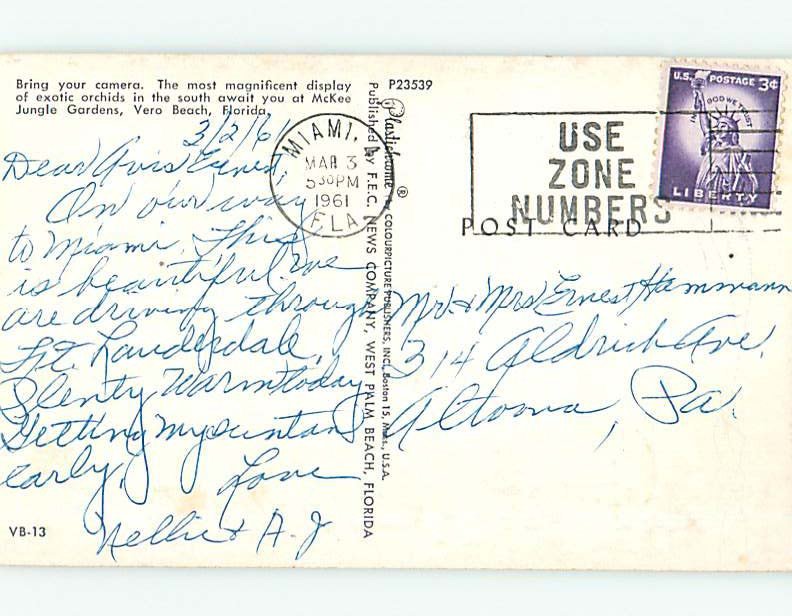 Bring your camera. The most magnificent display
of exotic orchids in the south await you at McKee
Jungle Gardens, Vero Beach, Florida.
3/2/6
Dear Avis & Ernest,
On our way
to Miami. This
is beautiful we
are driving through
Ft. Lauderdale,
Plenty warm today
Getting my suntan
early.
Love
Nellie & A. J
VB-13
P23539
Plastichrome ® by COLOURPICTURE PUBLISHERS, INC., Boston 15, Mass., U.S.A.
Published by F.E.C. NEWS COMPANY, WEST PALM BEACH, FLORIDA
MIAMI,
MAR 3
5 30 PM
1961
FLA
USE
ZONE
NUMBERS
POST CARD
U.S. POSTAGE 3¢
IN GOD WE TRUST
LIBERTY
Mr. & Mrs Ernest Hammann
314 Aldrich Ave.
Altoona, Pa.